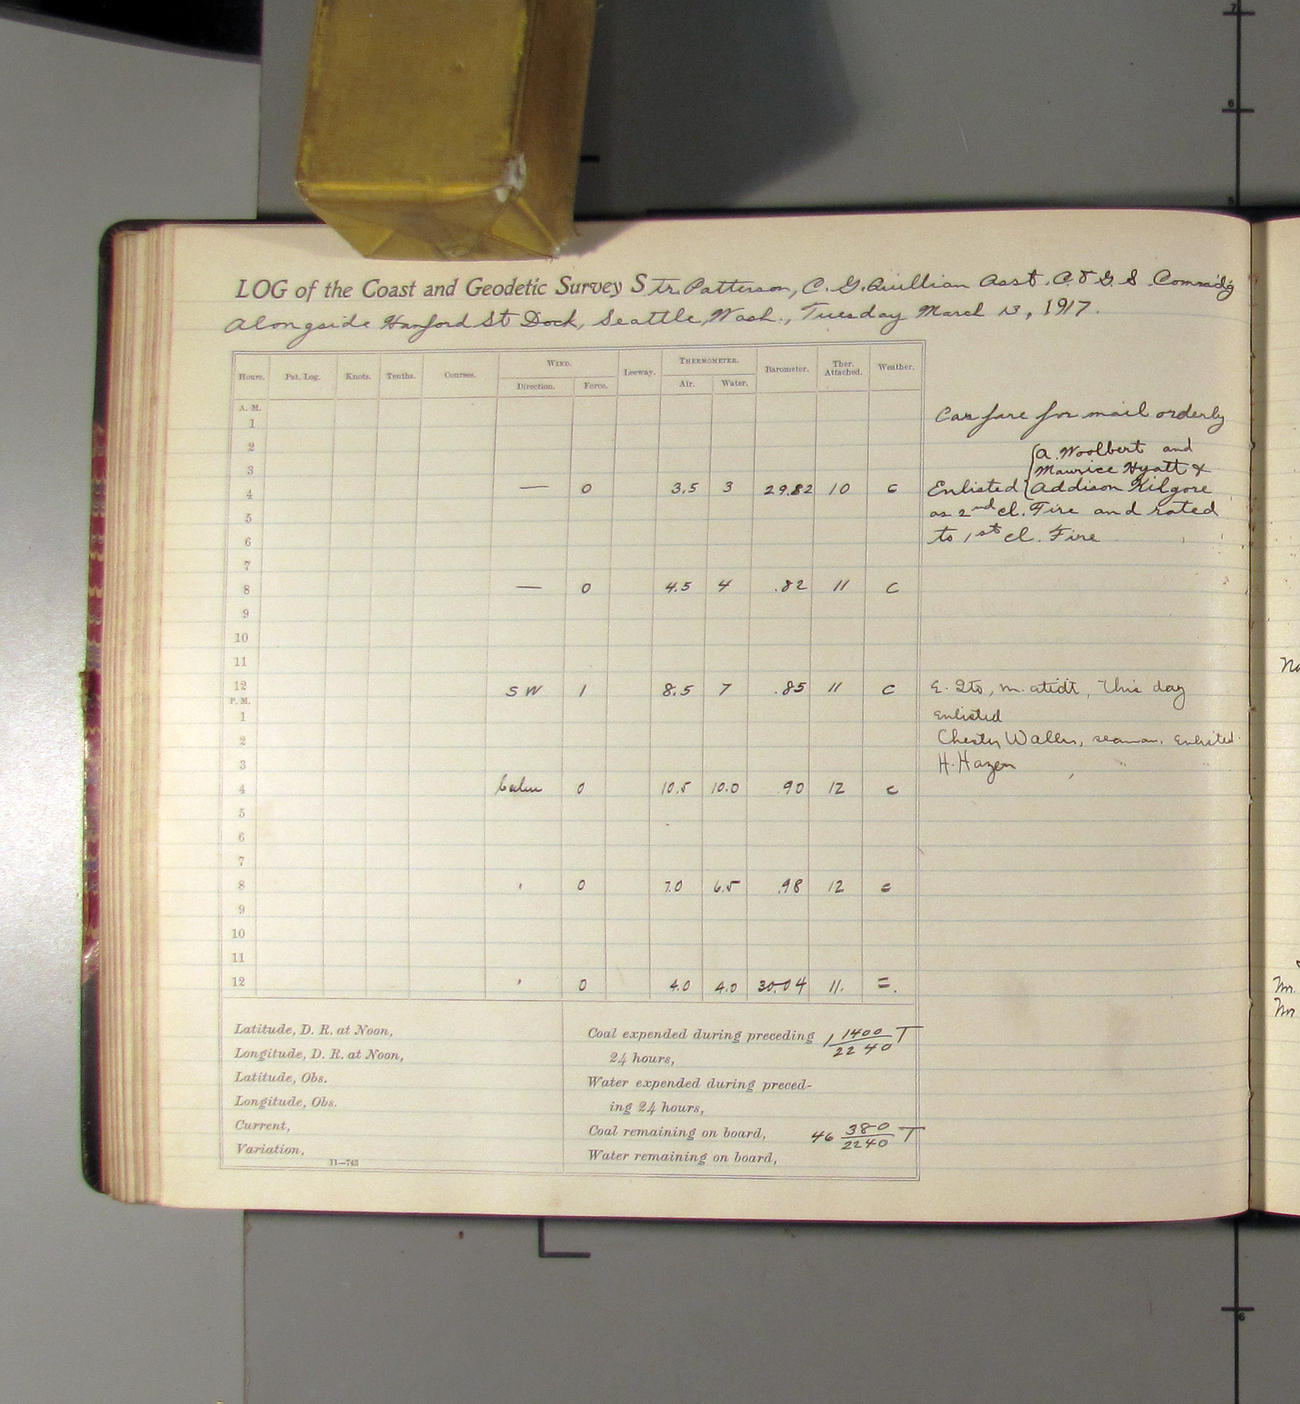 LOG of the Coast and Geodetic Survey Str. Patterson, C. G. Quillian Asst. C. & G. S. Commd'g
Alongside Hanford St Dock, Seattle, Wash., Tuesday March 13, 1917.
Hours. Pat. Log. Knots. Tenths. Courses. WIND. Direction. Force. Leeway. THERMOMETER. Air. Water. Barometer. Ther. Attached. Weather.
A. M.
1 Car fare for mail orderly
2 A. Woolbert and
3 Maurice Hyatt &
4 — 0 3.5 3 29.82 10 c Enlisted Addison Kilgore
5 as 2nd cl. Fire and rated
6 to 1st cl. Fire
7
8 — 0 4.5 4 .82 11 c
9
10
11
12 SW 1 8.5 7 .85 11 c E. Ito, m. attdt, this day
P. M.
1 enlisted
2 Chester Waller, seaman, enlisted
3 H. Hazen
4 Calm 0 10.5 10.0 .90 12 c
5
6
7
8 ' 0 7.0 6.5 .98 12 c
9
10
11
12 ' 0 4.0 4.0 30.04 11.
Latitude, D. R. at Noon,
Longitude, D. R. at Noon,
Latitude, Obs.
Longitude, Obs.
Current,
Variation,
11—743
Coal expended during preceding 1 1400/2240 T
24 hours,
Water expended during preced-
ing 24 hours,
Coal remaining on board, 46 380/2240 T
Water remaining on board,
7
6
5
No
Mr.
Mr.
6